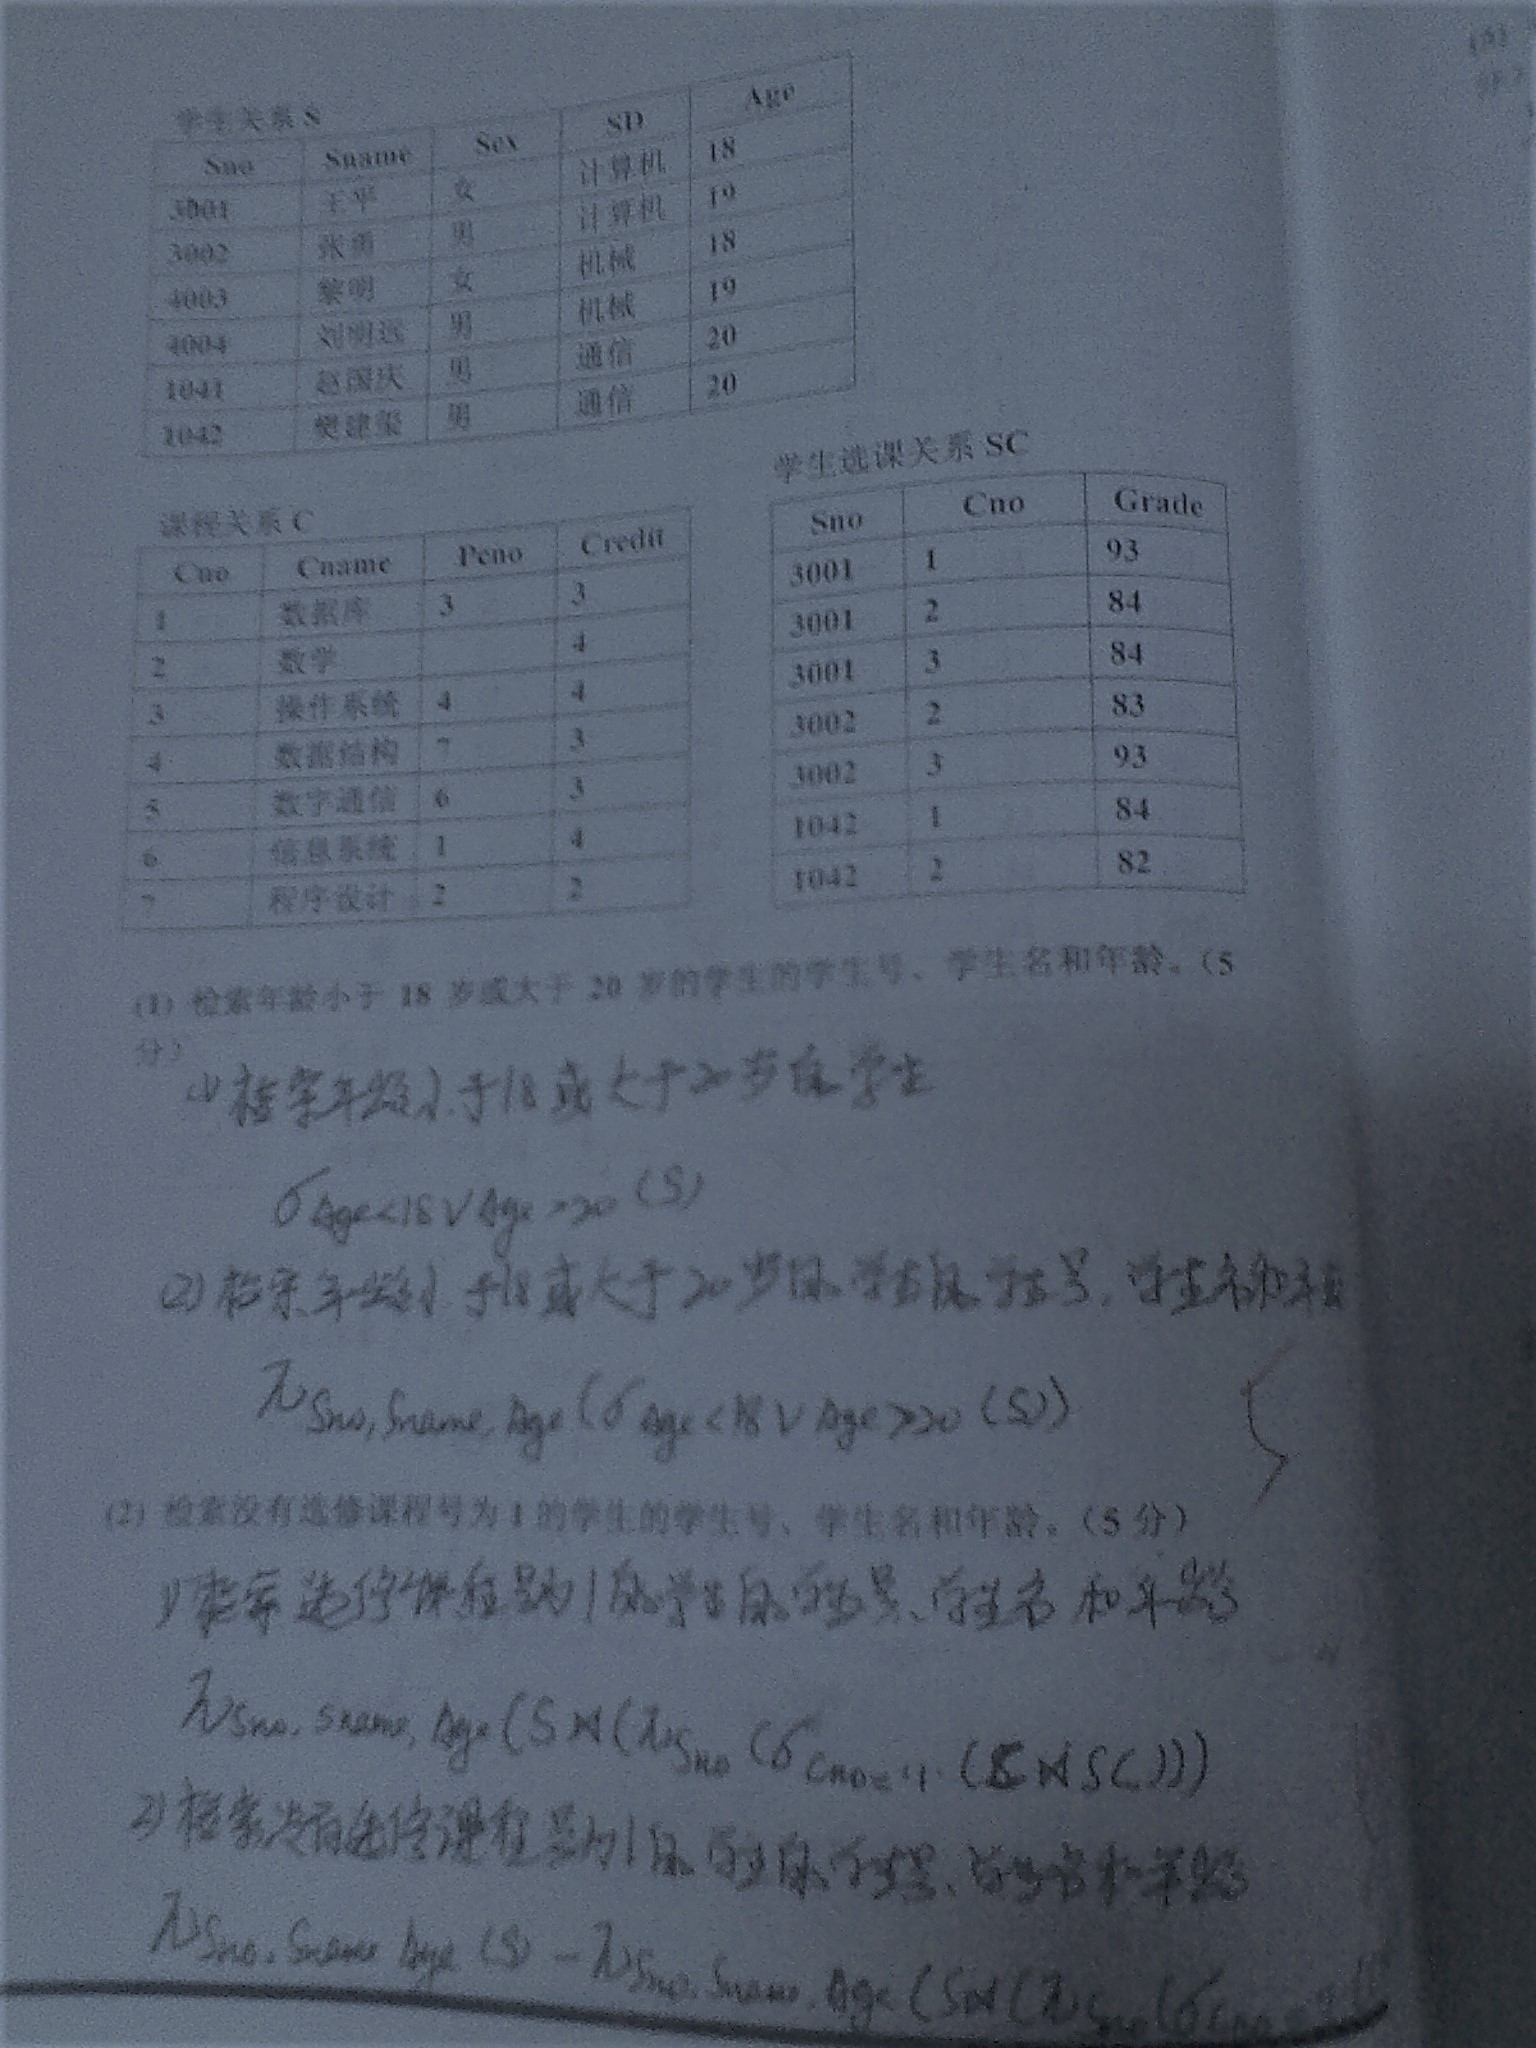 学生关系 S
Sno Sname Sex SD Age
3001 王平 女 计算机 18
3002 张勇 男 计算机 19
4003 黎明 女 机械 18
4004 刘明远 男 机械 19
1041 赵国庆 男 通信 20
1042 樊建玺 男 通信 20
课程关系 C
Cno Cname Pcno Credit
1 数据库 3 3
2 数学 4
3 操作系统 4 4
4 数据结构 7 3
5 数字通信 6 3
6 信息系统 1 4
7 程序设计 2 2
学生选课关系 SC
Sno Cno Grade
3001 1 93
3001 2 84
3001 3 84
3002 2 83
3002 3 93
1042 1 84
1042 2 82
(1) 检索年龄小于 18 岁或大于 20 岁的学生的学生号、学生名和年龄。(5
分)
1) 检索年龄小于18或大于20岁的学生
σ Age<18 ∨ Age>20 (S)
2) 检索年龄小于18或大于20岁的学生的学生号、学生名和年龄
π Sno, Sname, Age (σ Age<18 ∨ Age>20 (S))
(2) 检索没有选修课程号为 1 的学生的学生号、学生名和年龄。(5 分)
1) 检索选修课程号为1的学生的学生号、学生名和年龄
π Sno, Sname, Age (S⋈(π Sno (σ Cno='1' (C⋈SC)))
2) 检索没有选修课程号为1的学生的学生号、学生名和年龄
π Sno, Sname Age (S) − π Sno, Sname, Age (S⋈(π Sno (σ